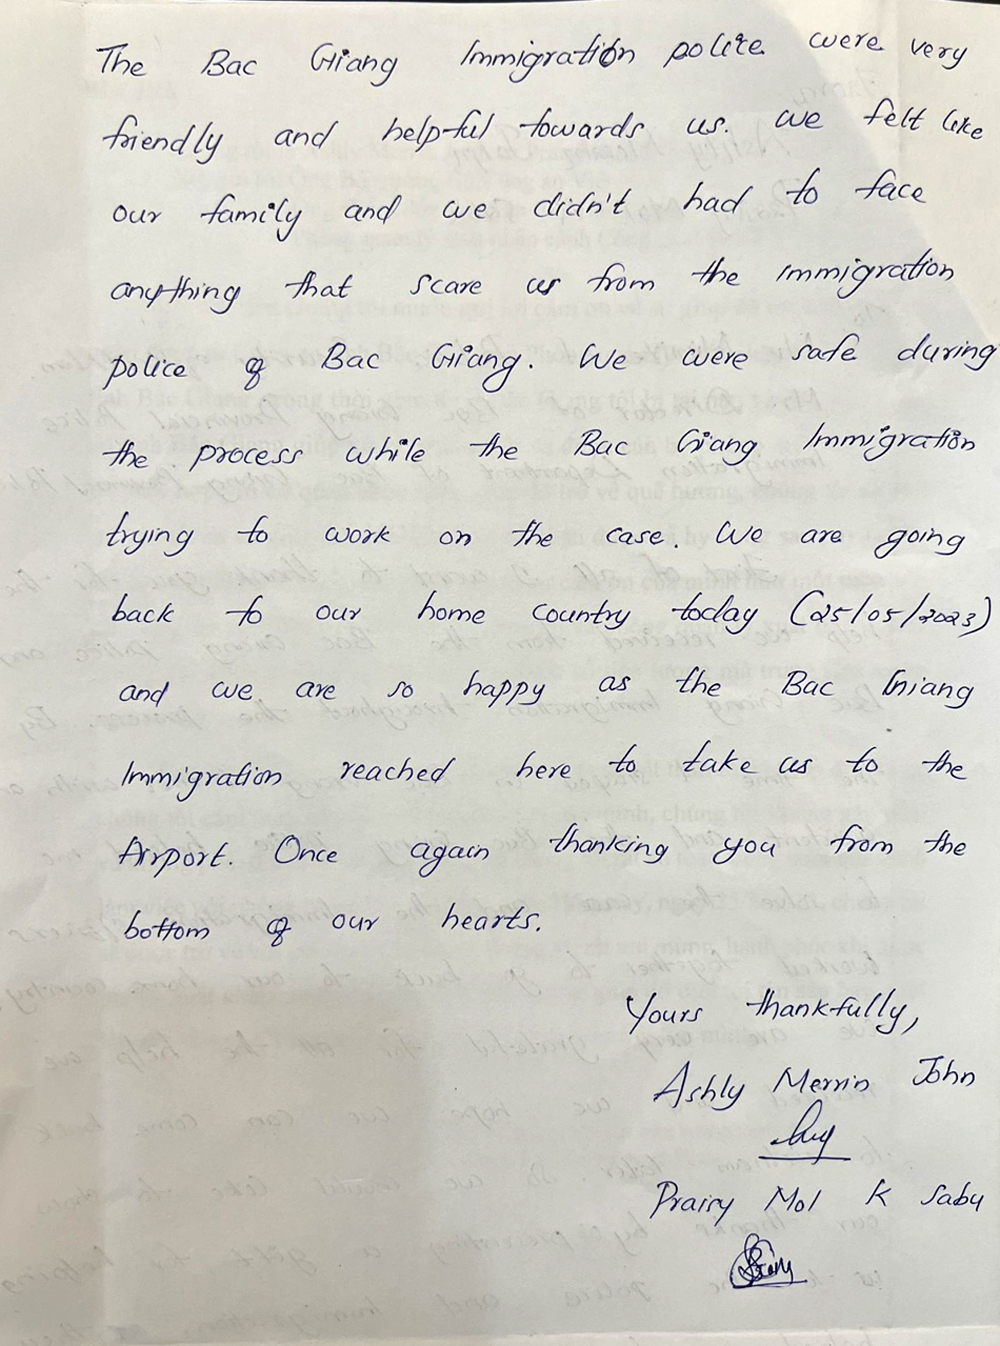 The Bac Giang Immigration police were very
friendly and helpful towards us. We felt like
our family and we didn't had to face
anything that scare us from the Immigration
police of Bac Giang. We were safe during
the process while the Bac Giang Immigration
trying to work on the case. We are going
back to our home country today (25/05/2023)
and we are so happy as the Bac Giang
Immigration reached here to take us to the
Airport. Once again thanking you from the
bottom of our hearts.
Yours thankfully,
Ashly Merrin John
Praisy Mol K Sabu